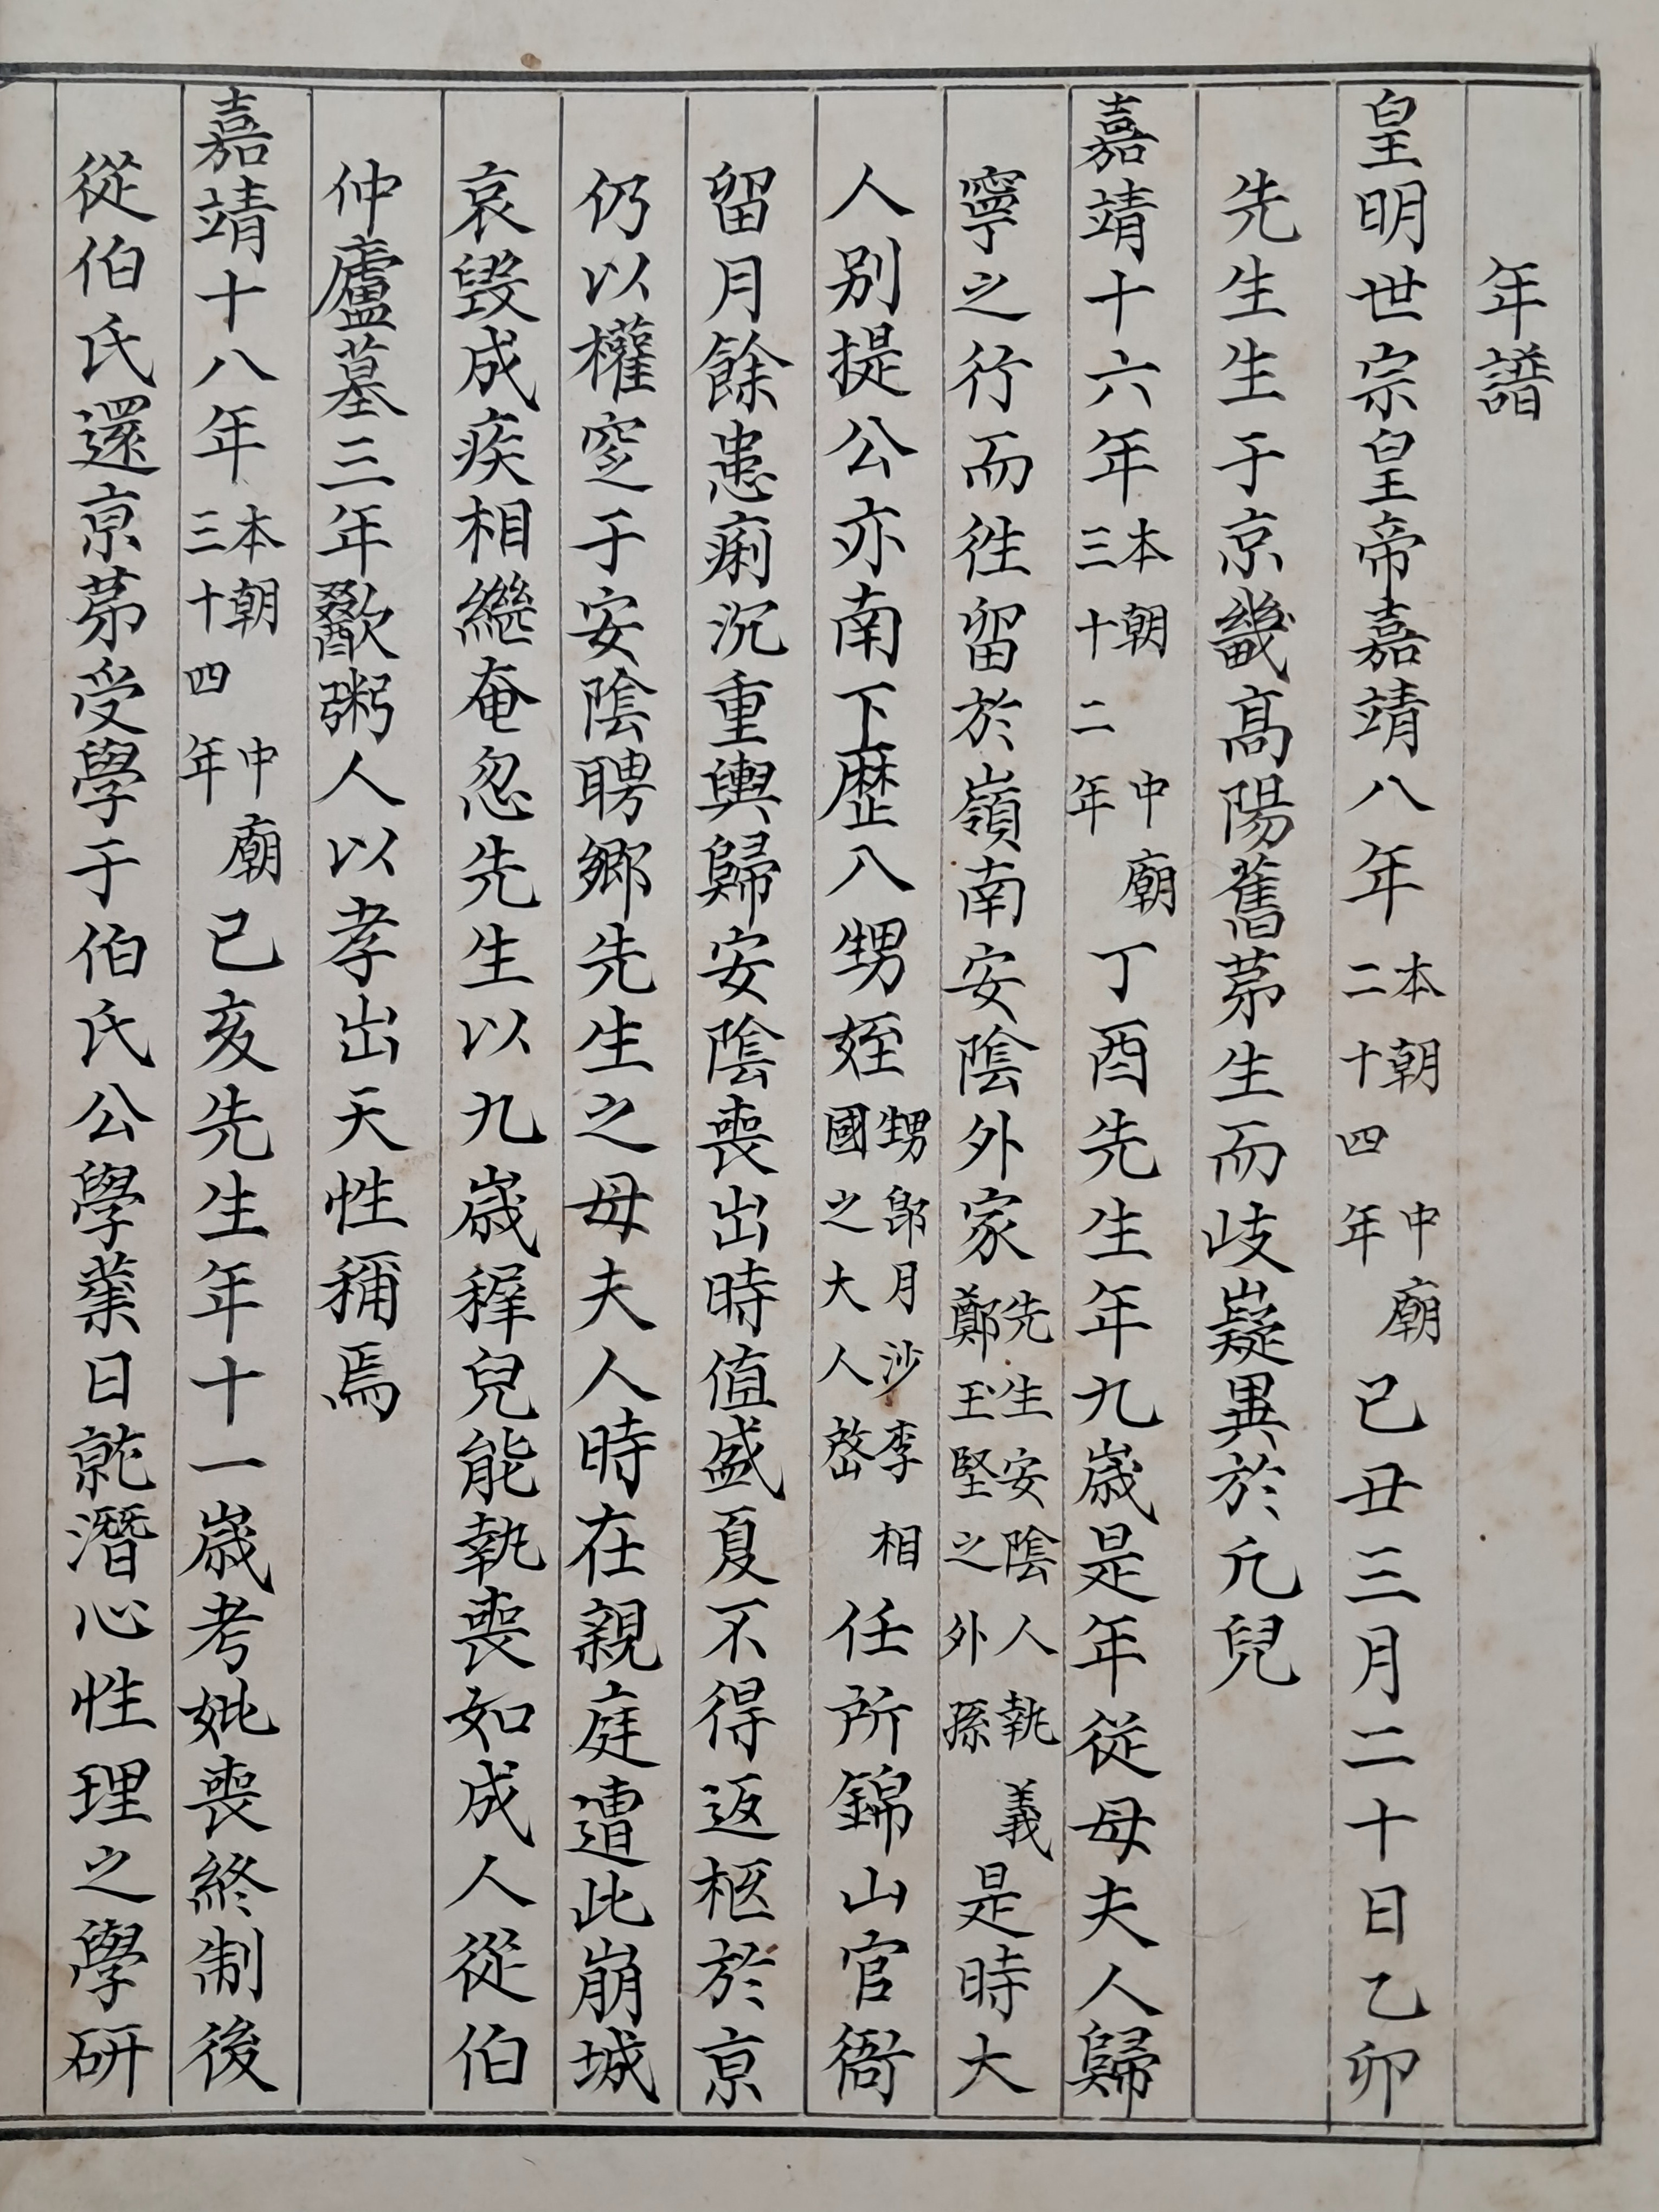 年譜
皇明世宗皇帝嘉靖八年本朝中廟二十四年己丑三月二十日乙卯
先生生于京畿髙陽舊苐生而岐嶷異於凢兒
嘉靖十六年本朝中廟三十二年丁酉先生年九歳是年從母夫人歸
寧之行而徃留於嶺南安陰外家先生安陰人執義鄭玉堅之外孫是時大
人别提公亦南下歷八甥姪甥郎月沙李相國之大人㟳任所錦山官衙
留月餘患痢沉重輿歸安陰喪出時值盛夏不得返柩於京
仍以權窆于安陰聘鄉先生之母夫人時在親庭遭此崩城
哀毁成疾相繼奄忽先生以九歳穉兒能執喪如成人從伯
仲廬墓三年歠粥人以孝出天性稱焉
嘉靖十八年本朝中廟三十四年己亥先生年十一歳考妣喪終制後
從伯氏還京苐受學于伯氏公學業日就潛心性理之學研